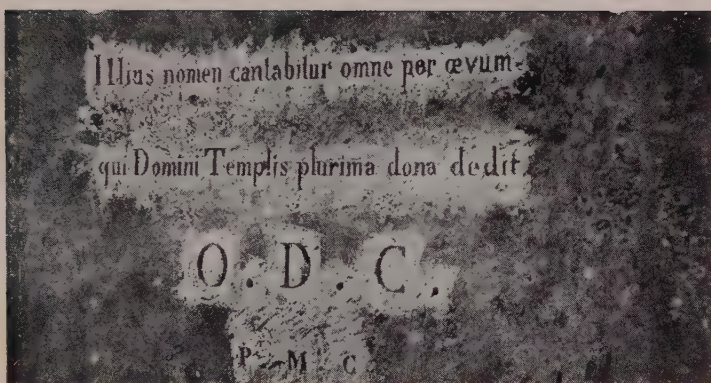 Illius nomen cantabitur omne per œvum
qui Domini Templis plurima dona dedit
O. D. C.
P M C